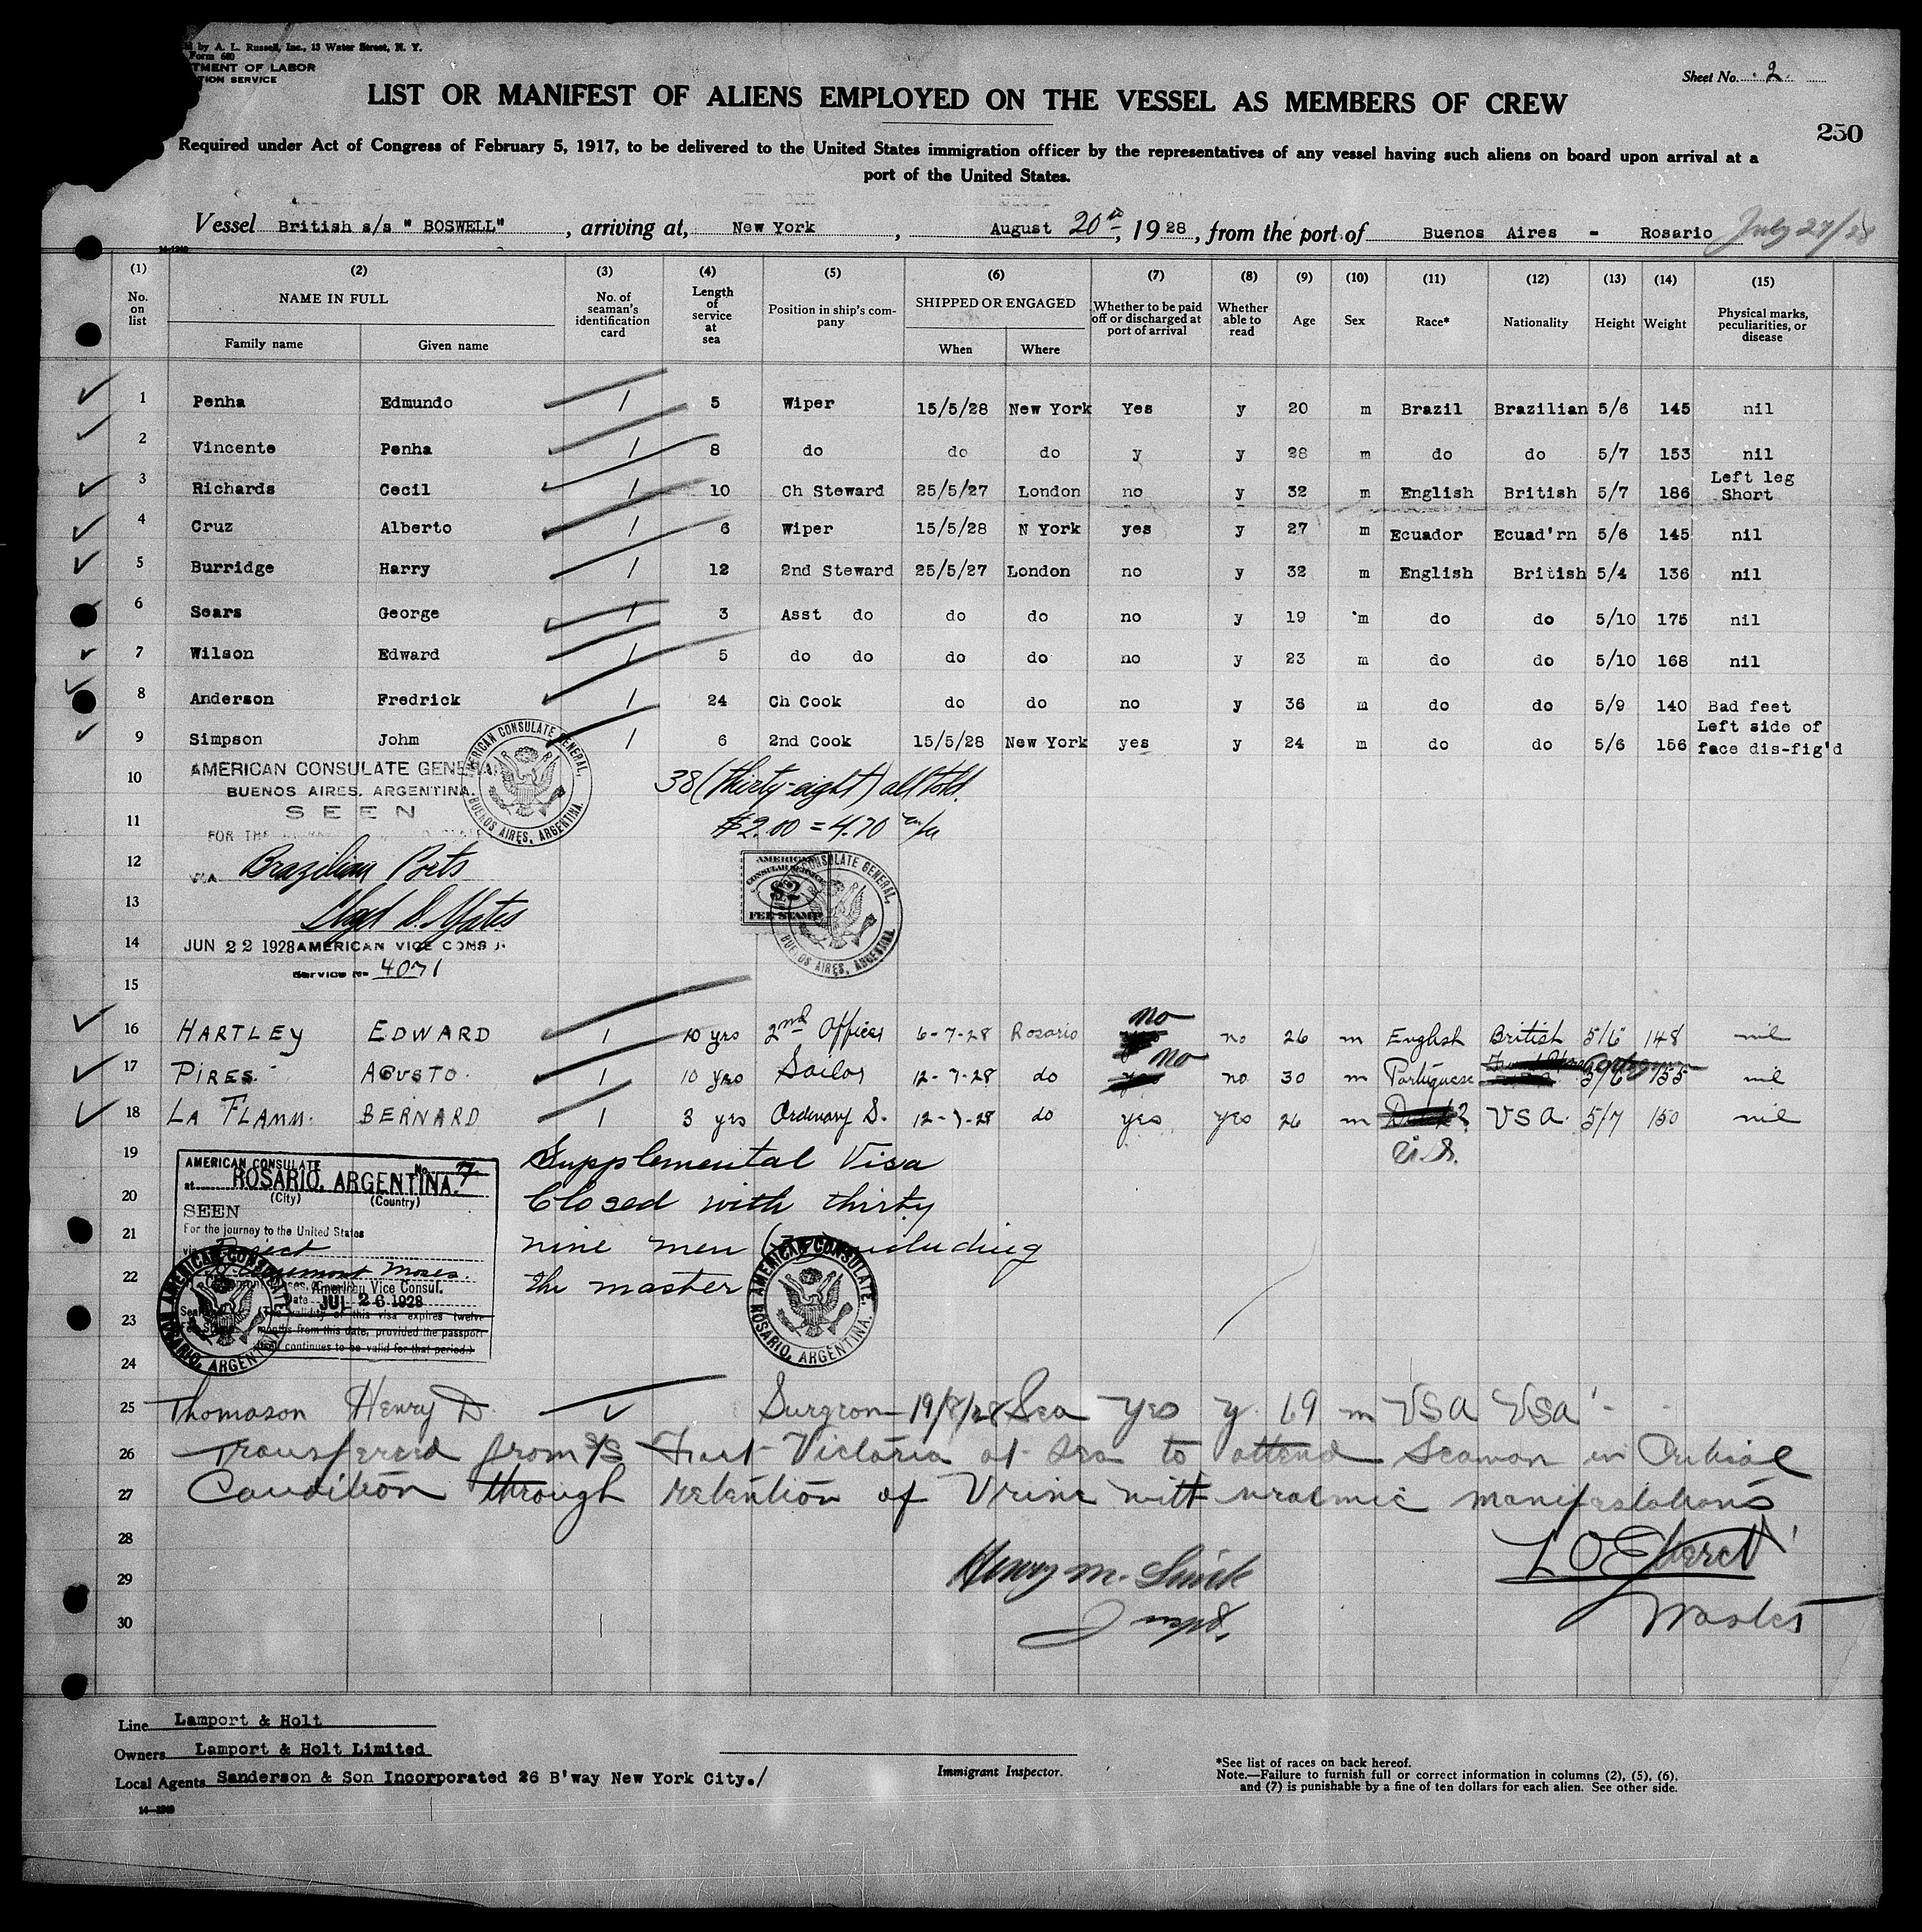 by A. L. Russell, Inc., 13 Water Street, N. Y.
Form 680
TMENT OF LABOR
TION SERVICE
Sheet No. 2
LIST OR MANIFEST OF ALIENS EMPLOYED ON THE VESSEL AS MEMBERS OF CREW
250
Required under Act of Congress of February 5, 1917, to be delivered to the United States immigration officer by the representatives of any vessel having such aliens on board upon arrival at a
port of the United States.
Vessel British s/s " BOSWELL" , arriving at, New York , August 20th, 1928, from the port of Buenos Aires - Rosario July 27/28
(1) (2) (3) (4) (5) (6) (7) (8) (9) (10) (11) (12) (13) (14) (15)
No. on list NAME IN FULL Family name Given name No. of seaman's identification card Length of service at sea Position in ship's company SHIPPED OR ENGAGED When Where Whether to be paid off or discharged at port of arrival Whether able to read Age Sex Race* Nationality Height Weight Physical marks, peculiarities, or disease
1 Penha Edmundo 1 5 Wiper 15/5/28 New York Yes y 20 m Brazil Brazilian 5/6 145 nil
2 Vincente Penha 1 8 do do do y y 28 m do do 5/7 153 nil
3 Richards Cecil 1 10 Ch Steward 25/5/27 London no y 32 m English British 5/7 186 Left leg Short
4 Cruz Alberto 1 6 Wiper 15/5/28 N York yes y 27 m Ecuador Ecuad'rn 5/6 145 nil
5 Burridge Harry 1 12 2nd Steward 25/5/27 London no y 32 m English British 5/4 136 nil
6 Sears George 1 3 Asst do do do no y 19 m do do 5/10 175 nil
7 Wilson Edward 1 5 do do do do no y 23 m do do 5/10 168 nil
8 Anderson Fredrick 1 24 Ch Cook do do no y 36 m do do 5/9 140 Bad feet
9 Simpson Johm 1 6 2nd Cook 15/5/28 New York yes y 24 m do do 5/6 156 Left side of face dis-fig'd
10 AMERICAN CONSULATE GENERAL
BUENOS AIRES, ARGENTINA.
SEEN
FOR THE
AMERICAN CONSULATE GENERAL, BUENOS AIRES, ARGENTINA.
38 (thirty-eight) all told.
11 $2.00 = 4.70 m/n
12 VIA Brazilian Ports
AMERICAN CONSULAR SERVICE $2 FEE STAMP
CONSULATE GENERAL, BUENOS AIRES, ARGENTINA.
13 Lloyd D. Yates
14 JUN 22 1928 AMERICAN VICE CONSUL
Service No 4071
15
16 HARTLEY EDWARD 1 10 yrs 2nd Officer 6-7-28 Rosario no no 26 m English British 5/6 148 nil
17 PIRES. AGUSTO. 1 10 yrs Sailor 12-7-28 do no no 30 m Portuguese 5/6 155 nil
18 LA FLAMM. BERNARD 1 3 yrs Ordinary S. 12-7-28 do yes yes 26 m USA. 5/7 150 nil
U.S.
19 Supplemental Visa
20 Closed with thirty
21 nine men including
22 the master
23
24
AMERICAN CONSULATE No. 7
at ROSARIO, ARGENTINA.
(City) (Country)
SEEN
For the journey to the United States
via Direct
Moses.
American Vice Consul.
Date JUL 26 1928
(The validity of this visa expires twelve
months from this date, provided the passport
continues to be valid for that period.)
AMERICAN CONSULATE, ROSARIO, ARGENTINA.
AMERICAN CONSULATE, ROSARIO, ARGENTINA.
25 Thomason Henry D. Surgeon 19/8/28 Sea Yes y. 69 m USA USA
26 Transferred from S/S Fort Victoria at Sea to attend Seaman in Critical
27 Condition through retention of Urine with uraemic manifestations
28
29 Henry M.
30 Master
Line Lamport & Holt
Owners Lamport & Holt Limited
Local Agents Sanderson & Son Incorporated 26 B'way New York City./
Immigrant Inspector.
*See list of races on back hereof.
Note.—Failure to furnish full or correct information in columns (2), (5), (6),
and (7) is punishable by a fine of ten dollars for each alien. See other side.
14—1240